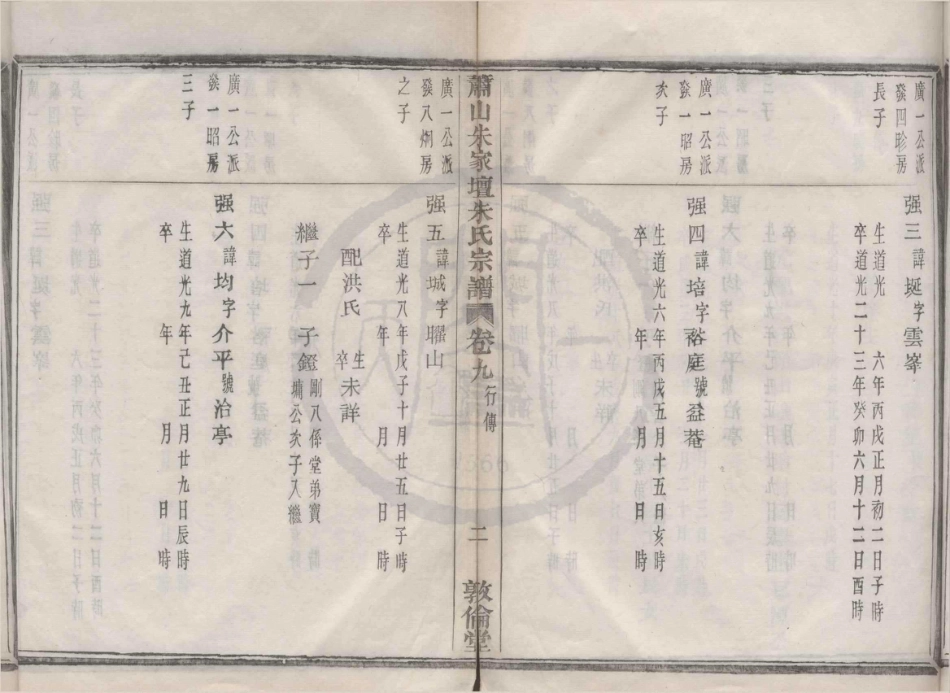 廣一公派
發四昣房
長子
强三諱埏字雲峯
生道光　六年丙戌正月初二日子時
卒道光二十三年癸卯六月十二日酉時
廣一公派
發一昭房
次子
强四諱培字裕庭號益菴
生道光六年丙戌五月十五日亥時
卒　年　月　日　時
蕭山朱家壇朱氏宗譜
卷九
行傳
二
敦倫堂
廣一公派
發八烱房
之子
强五諱城字聯山
生道光八年戊子十月廿五日子時
卒　年　月　日　時
配洪氏
生
卒
未詳
繼子一　子鏗
剛八係堂弟寶
墉公次子入繼
廣一公派
發一昭房
三子
强六諱均字介平號治亭
生道光九年己丑正月廿九日辰時
卒　年　月　日　時